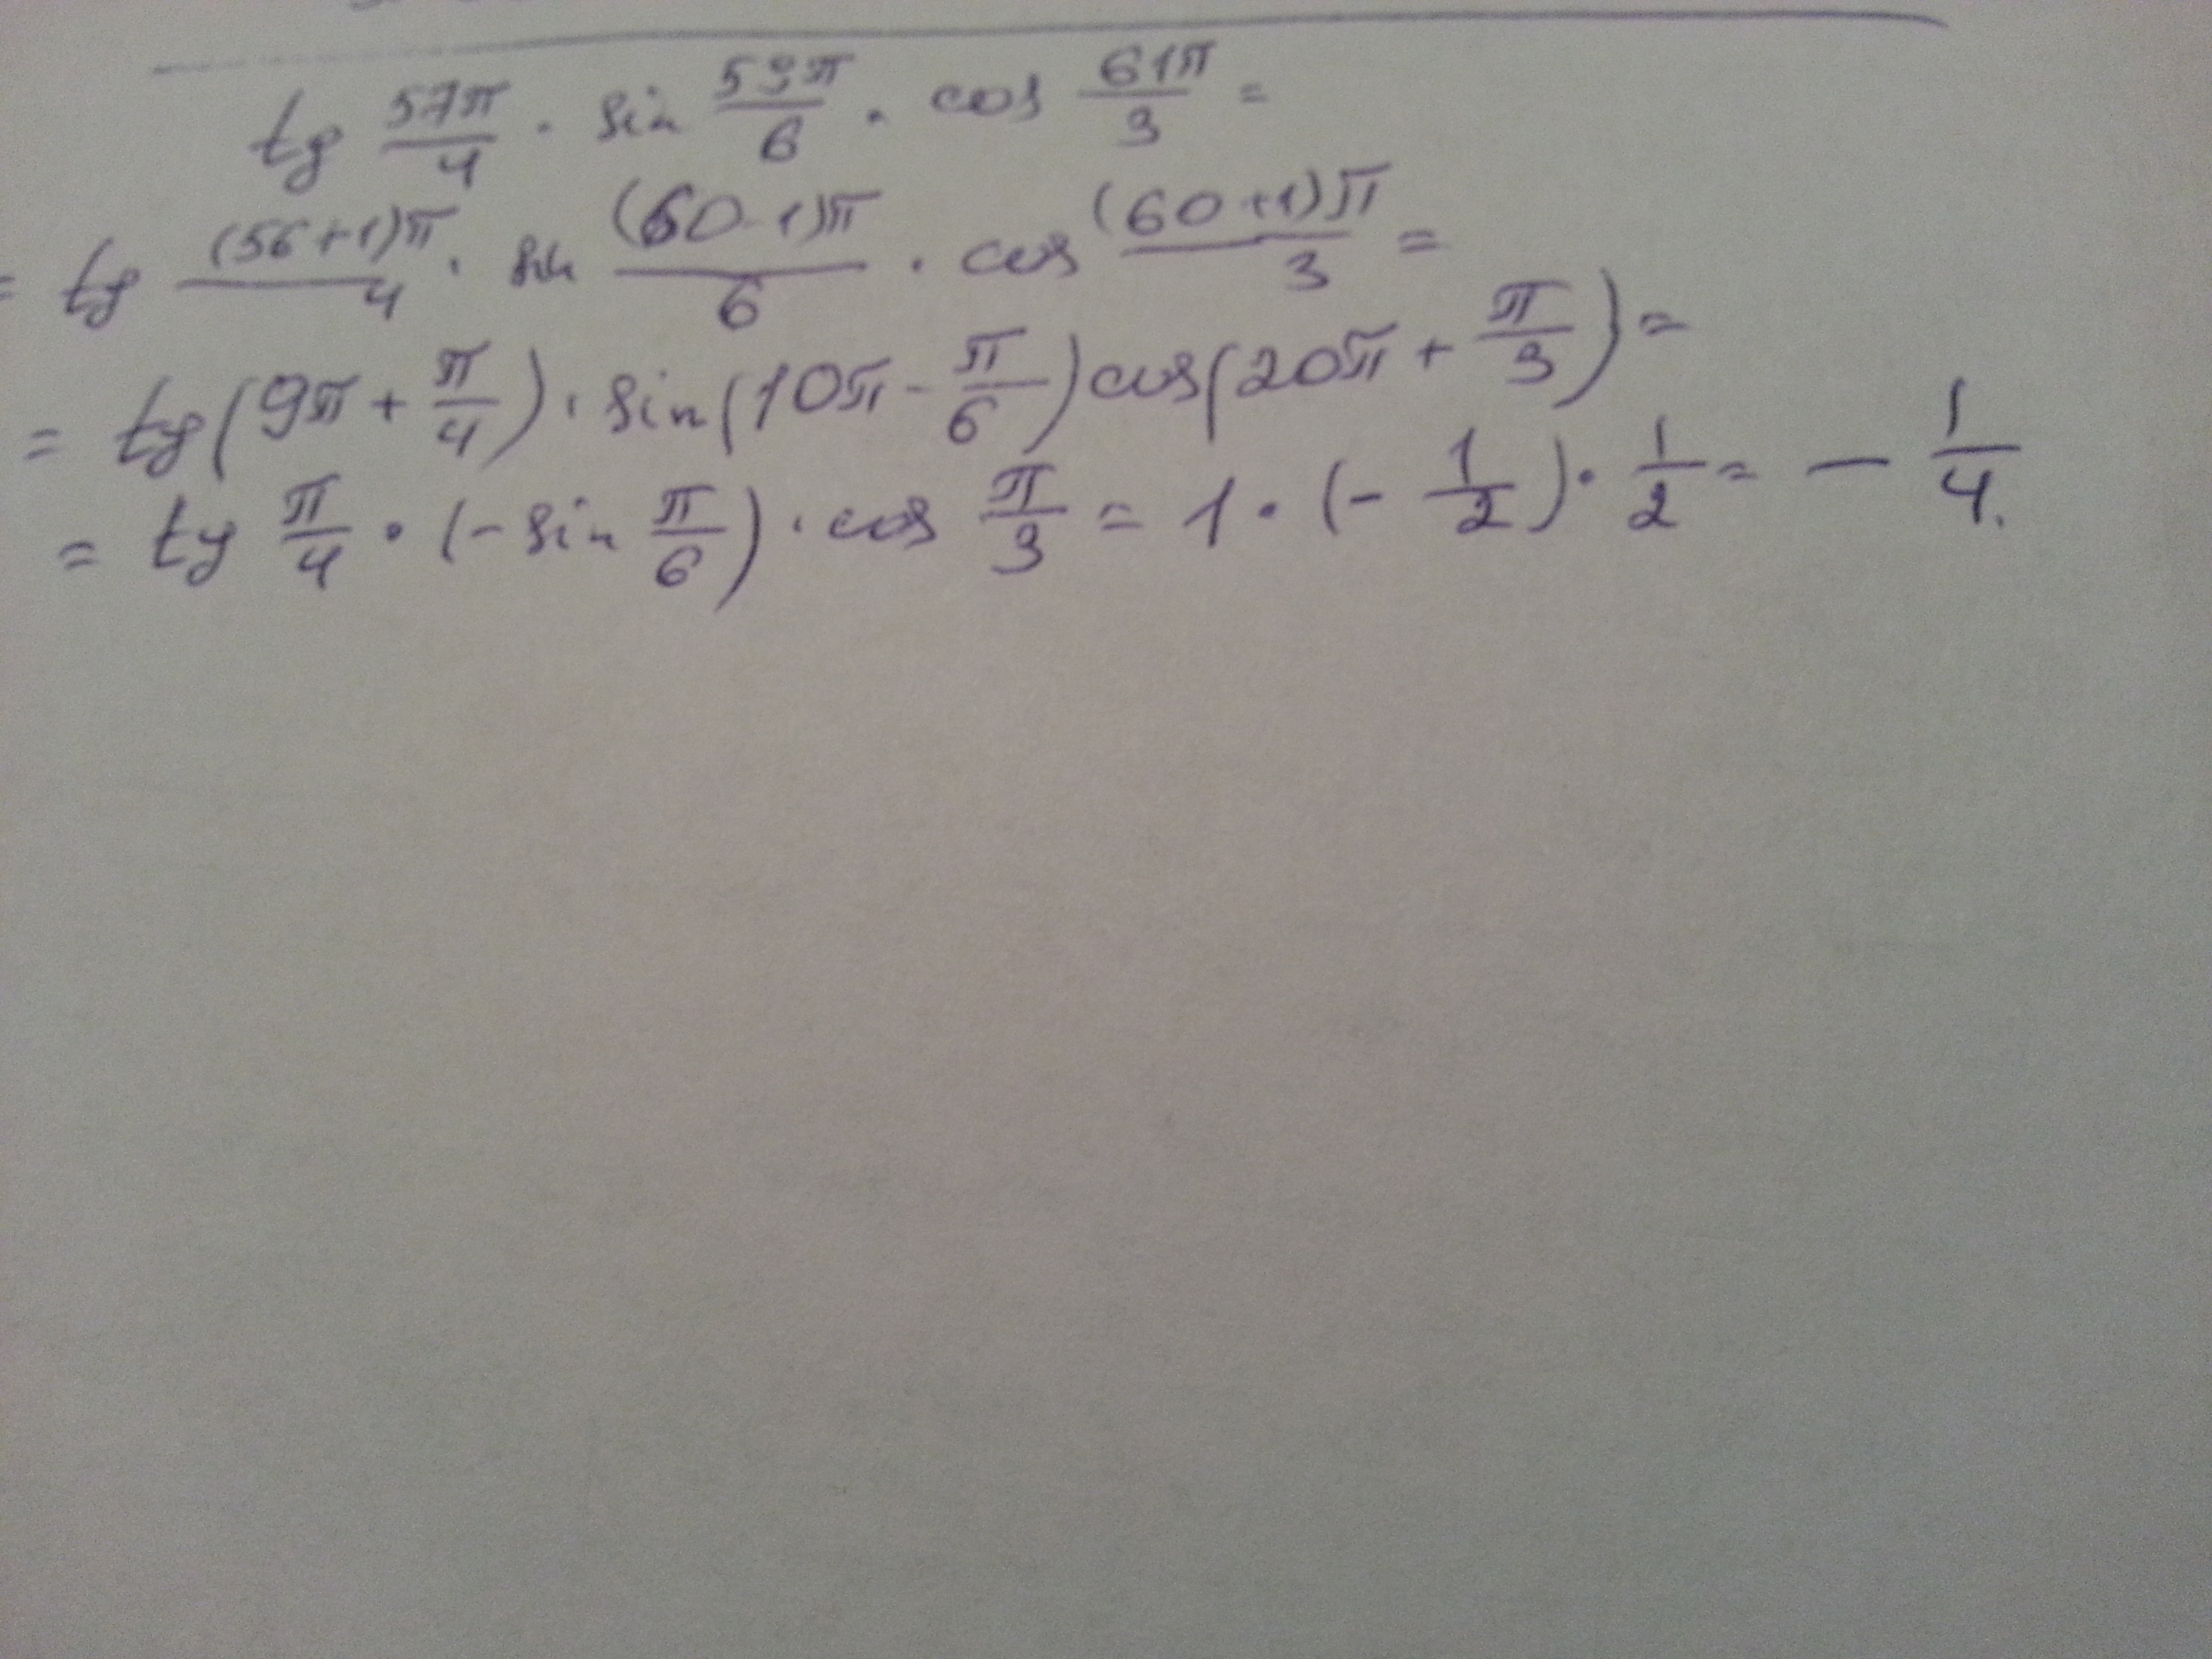 tg 57π/4 · sin 59π/6 · cos 61π/3 =
= tg (56+1)π/4 · sin (60-1)π/6 · cos (60+1)π/3 =
= tg(9π + π/4) · sin(10π - π/6) cos(20π + π/3) =
= tg π/4 · (-sin π/6) · cos π/3 = 1 · (- 1/2) · 1/2 = - 1/4.